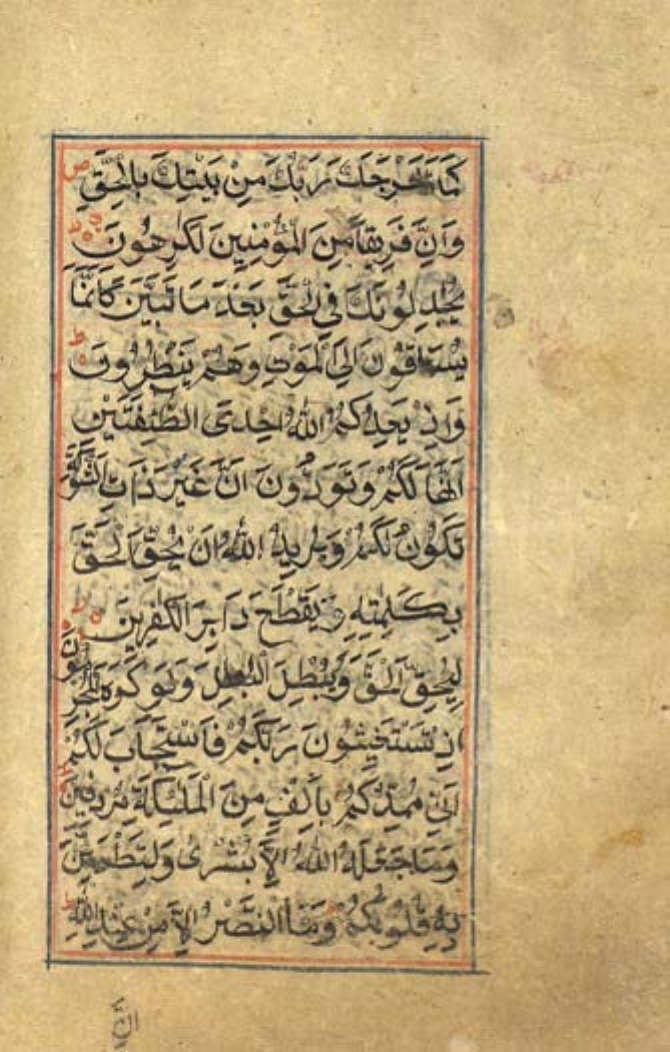 كَمَا أَخْرَجَكَ رَبُّكَ مِنْ بَيْتِكَ بِالْحَقِّ
وَاِنَّ فَرِيقًا مِنَ الْمُؤْمِنِينَ لَكٰرِهُونَ
يُجَادِلُونَكَ فِي الْحَقِّ بَعْدَ مَا تَبَيَّنَ كَاَنَّمَا
يُسَاقُونَ اِلَى الْمَوْتِ وَهُمْ يَنْظُرُونَ
وَاِذْ يَعِدُكُمُ اللّٰهُ اِحْدَى الطَّٓئِفَتَيْنِ
اَنَّهَا لَكُمْ وَتَوَدُّونَ اَنَّ غَيْرَ ذَاتِ الشَّوْكَةِ
تَكُونُ لَكُمْ وَيُرِيدُ اللّٰهُ اَنْ يُحِقَّ الْحَقَّ
بِكَلِمٰتِهٖ وَيَقْطَعَ دَابِرَ الْكٰفِرِينَ
لِيُحِقَّ الْحَقَّ وَيُبْطِلَ الْبَاطِلَ وَلَوْ كَرِهَ الْمُجْرِمُونَ
اِذْ تَسْتَغِيثُونَ رَبَّكُمْ فَاسْتَجَابَ لَكُمْ
اَنِّي مُمِدُّكُمْ بِاَلْفٍ مِنَ الْمَلٰٓئِكَةِ مُرْدِفِينَ
وَمَا جَعَلَهُ اللّٰهُ اِلَّا بُشْرٰى وَلِتَطْمَئِنَّ
بِهٖ قُلُوبُكُمْ وَمَا النَّصْرُ اِلَّا مِنْ عِنْدِ اللّٰهِ
اِنَّ